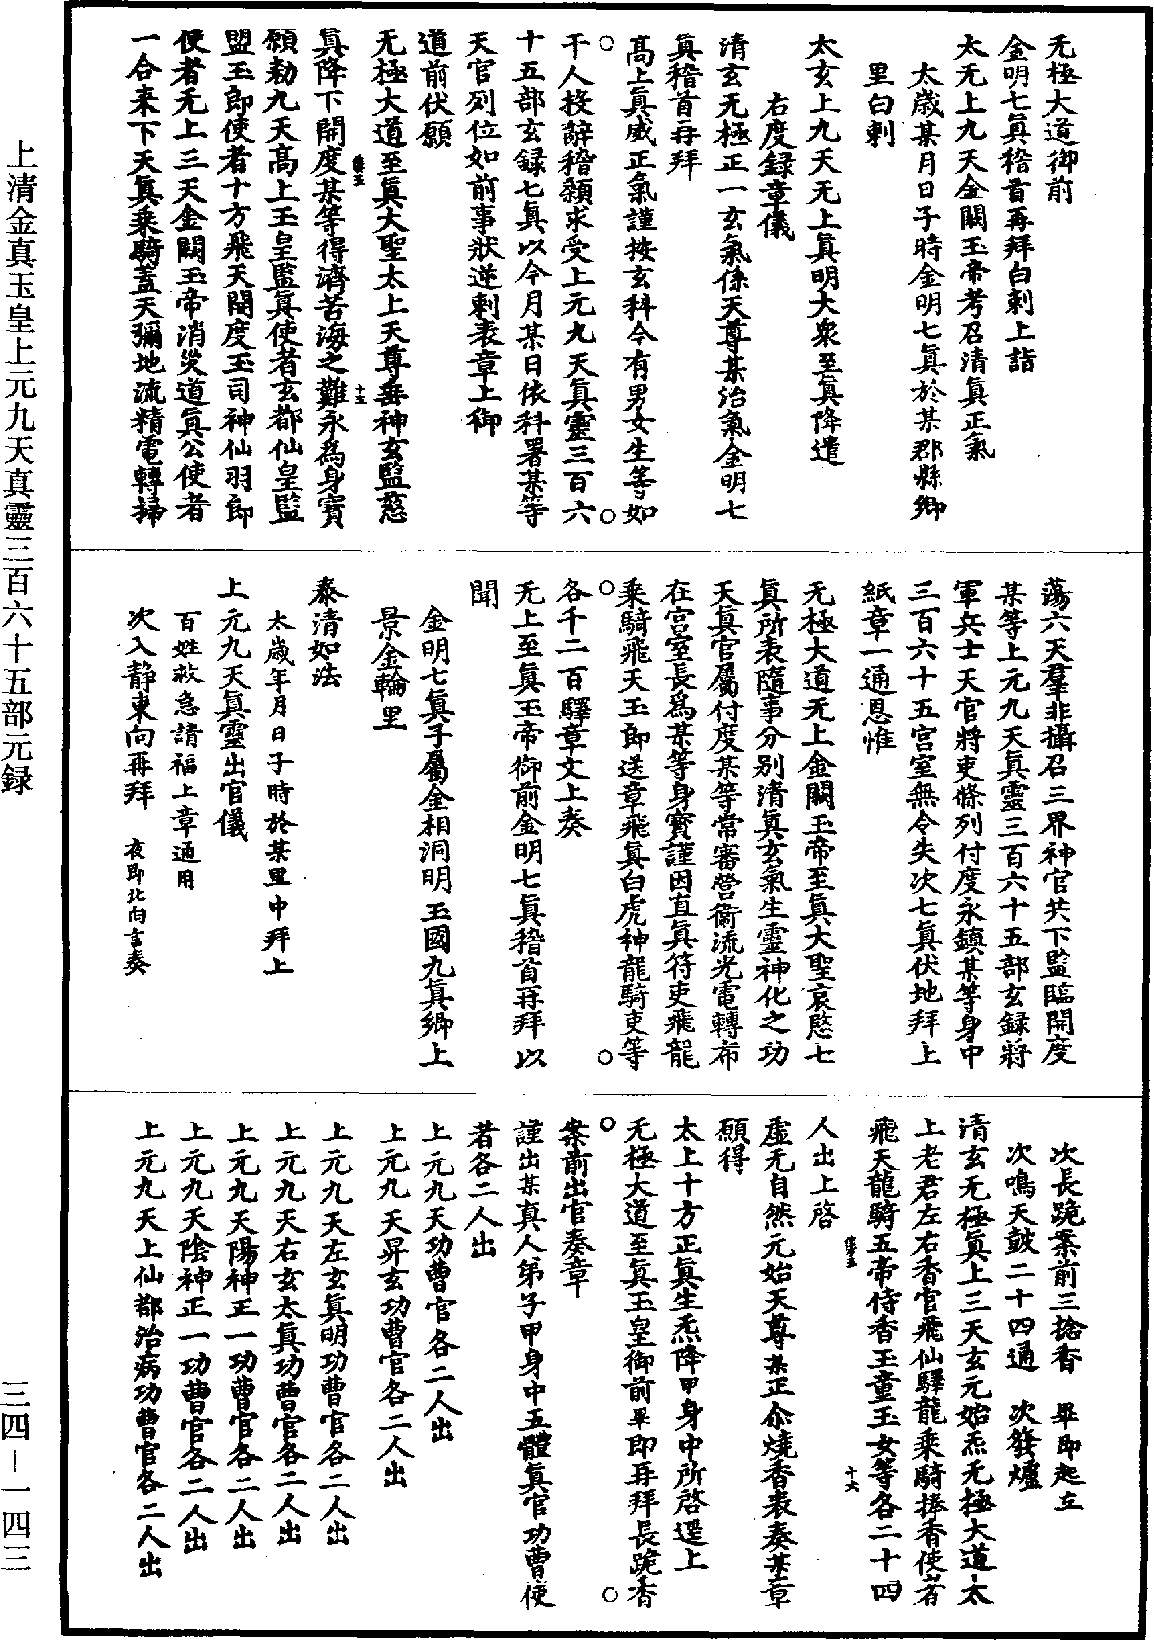 无極大道御前
金明七眞稽首再拜白剌上詣
太无上九天金闕玉帝考召清眞正氣
太歲某月日子時金明七眞於某郡縣鄉
里白剌
太玄上九天无上眞明大衆至眞降遣
右度録章儀
清玄无極正一玄氣係天尊某治氣金明七
眞稽首再拜
高上眞威正氣謹按玄科今有男女生等如
干人投辭稽顙求受上元九天眞靈三百六
十五部玄録七眞以今月某日依科署某等
天官列位如前事狀逆剌表章上御
道前伏願
无極大道至眞大聖太上天尊垂神玄監慈
眞降下開度某等得濟苦海之難永爲身寶
願勑九天高上玉皇監眞使者玄都仙皇監
盟玉郎使者十方飛天開度玉司神仙羽郎
使者无上三天金闕玉帝消災道眞公使者
一合來下天眞乘騎蓋天彌地流精電轉掃
蕩六天羣非攝召三界神官共下監臨開度
某等上元九天眞靈三百六十五部玄録將
軍兵士天官將吏條列付度永鎮某等身中
三百六十五宫室無令失次七眞伏地拜上
紙章一通恩惟
无極大道无上金闕玉帝至眞大聖哀愍七
眞所表隨事分别清眞玄氣生靈神化之功
天眞官屬付度某等常審營衞流光電轉布
在宫室長爲某等身寶謹因直眞符吏飛龍
乘騎飛天玉郎送章飛眞白虎神龍騎吏等
各千二百驛章文上奏
无上至眞玉帝御前金明七眞稽首再拜以
聞
金明七眞子屬金相洞明玉國九眞鄉上
景金輪里
泰清如法
太歲年月日子時於某里中拜上
上元九天眞靈出官儀
百姓救急請福上章通用
次入静東向再拜　夜即北向言奏
次長跪案前三捻香　畢即起立
次鳴天鼓二十四通　次發爐
清玄无極眞上三天玄元始炁无極大道太
上老君左右香官飛仙驛龍乘騎捧香使者
飛天龍騎五帝侍香玉童玉女等各二十四
人出上啓
虛无自然元始天尊某正尒燒香表奏某章
願得
太上十方正眞生炁降甲身中所啓逕上
无極大道至眞玉皇御前畢即再拜長跪香
案前出官奏章
謹出某真人弟子甲身中五體眞官功曹使
者各二人出
上元九天功曹官各二人出
上元九天昇玄功曹官各二人出
上元九天左玄眞明功曹官各二人出
上元九天右玄太眞功曹官各二人出
上元九天陽神正一功曹官各二人出
上元九天陰神正一功曹官各二人出
上元九天上仙都治病功曹官各二人出
上清金真玉皇上元九天真靈三百六十五部元録
三四－一四三